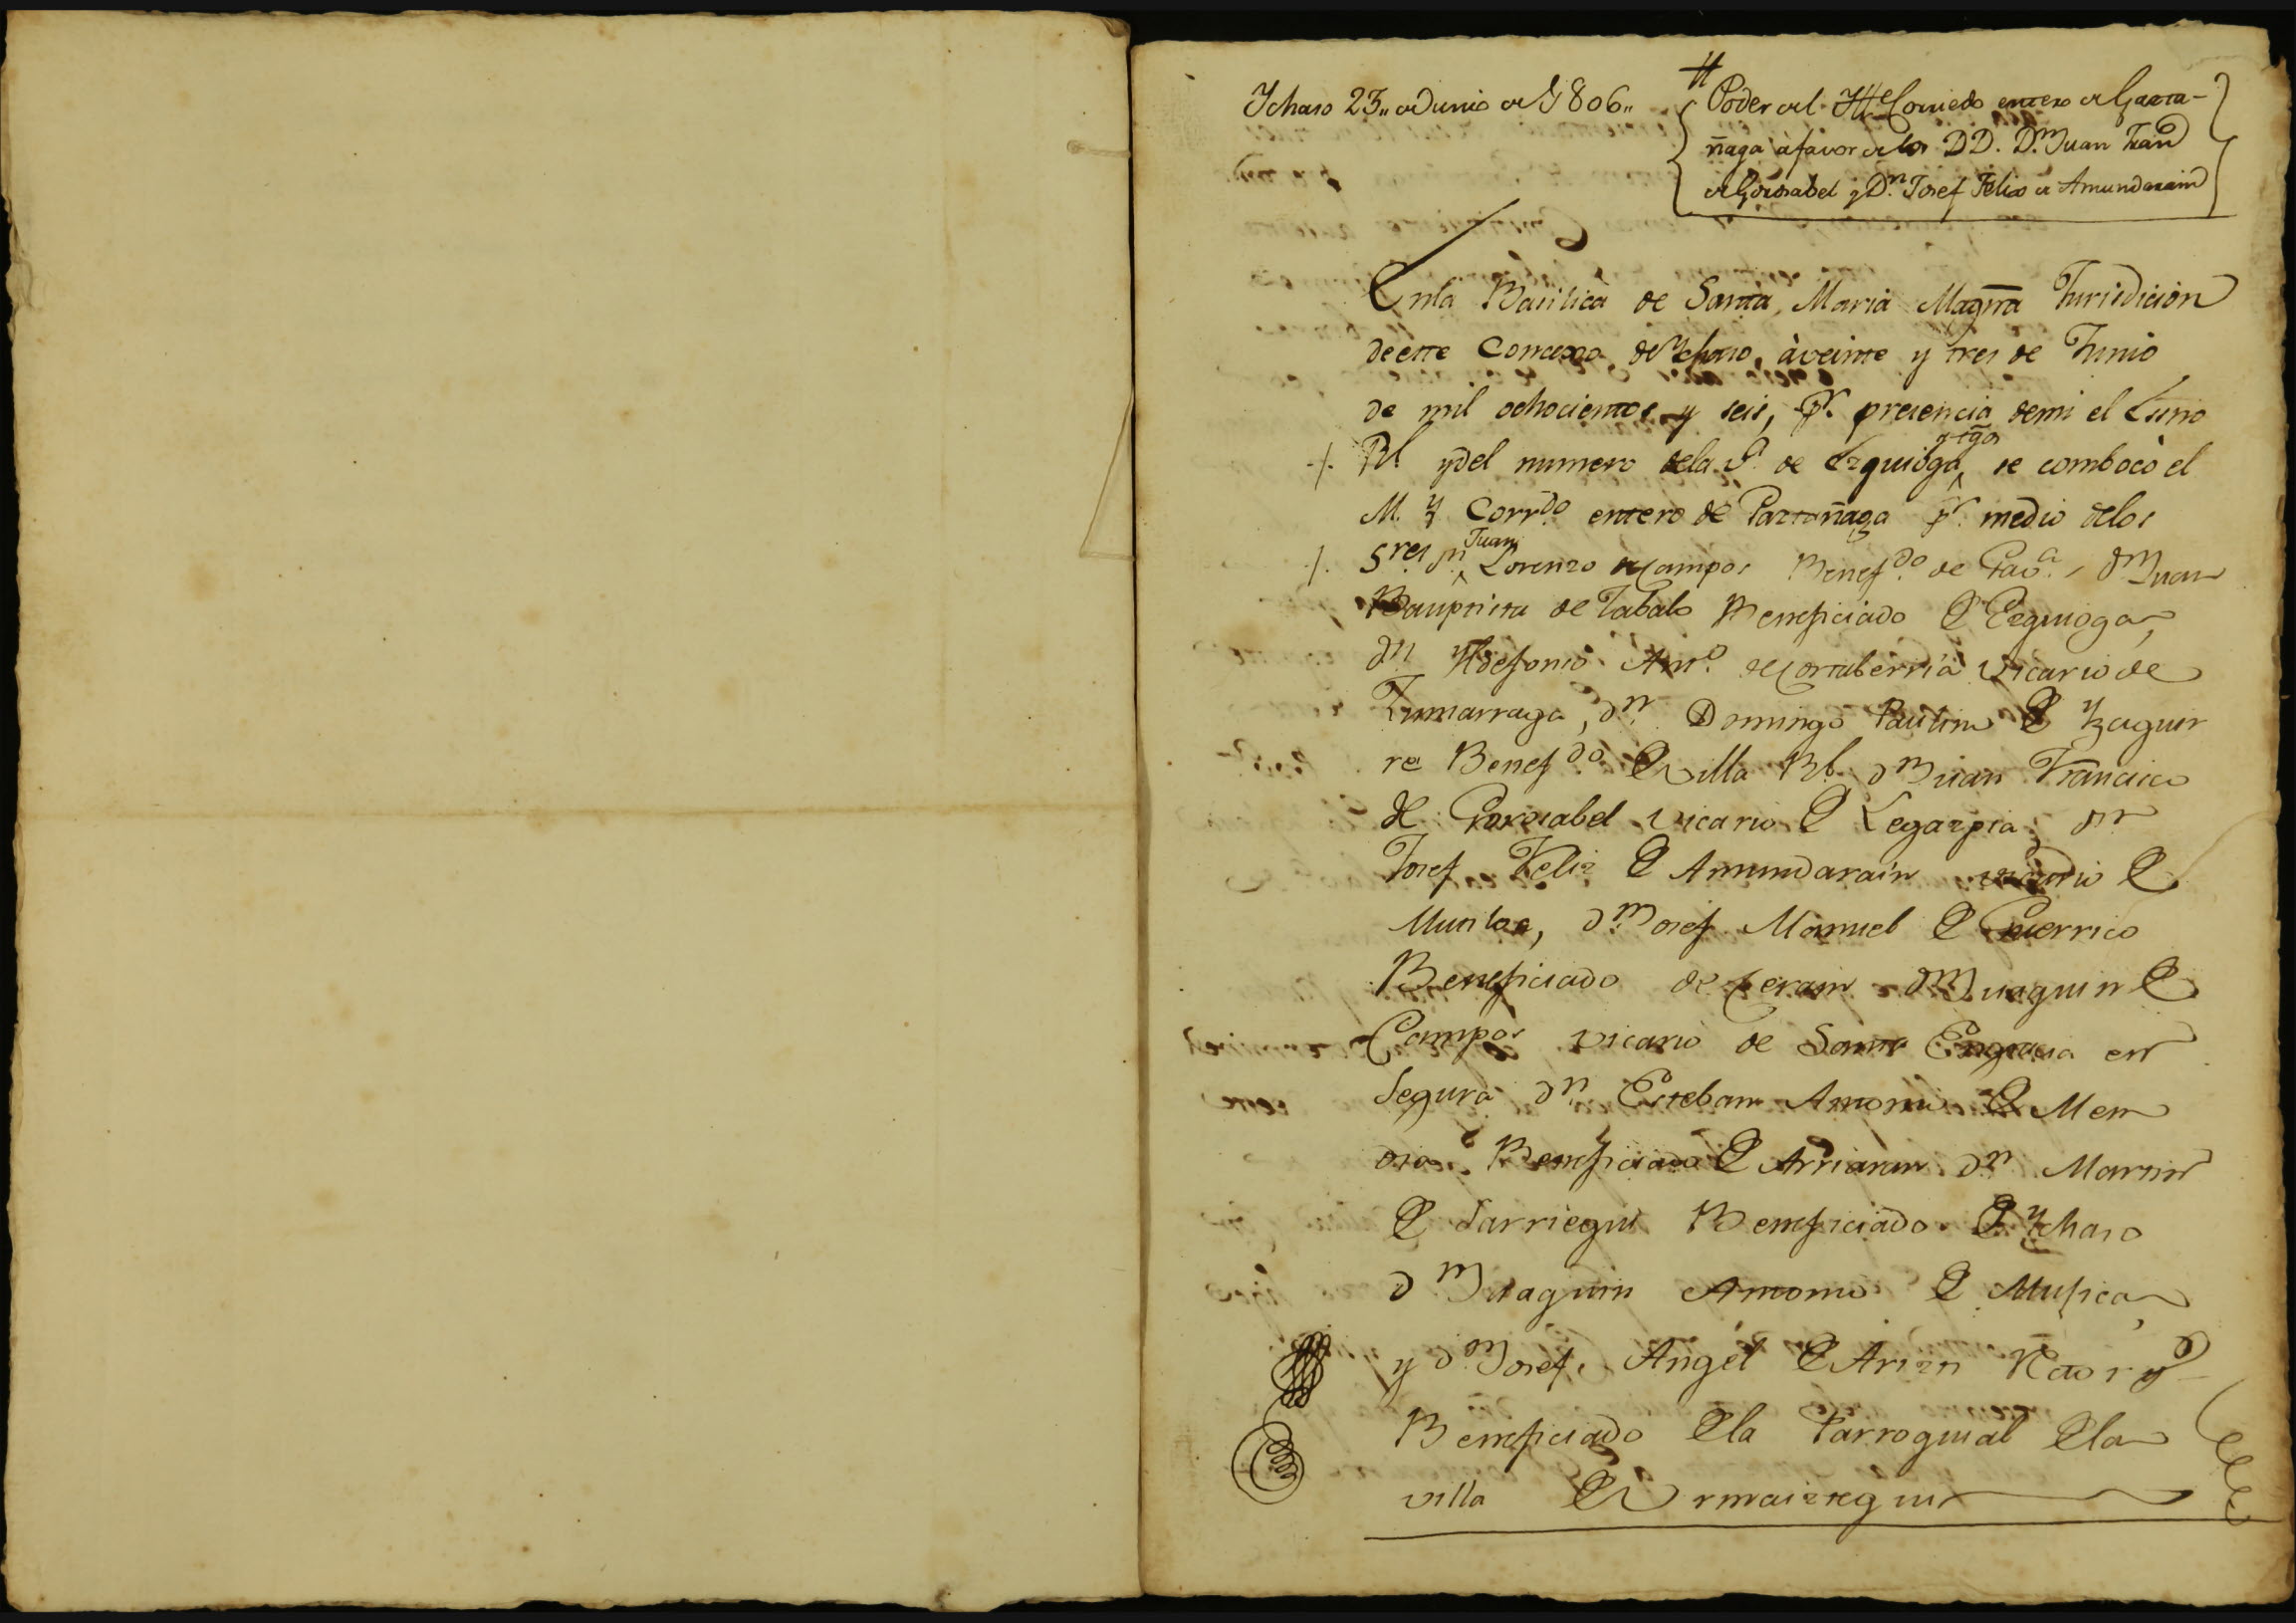 Ychaso 23,, de Junio de 1806,,
Poder del Ille. Corriedo entero de Gazta-
ñaga à favor de los DD. Dn. Juan Fran.co
de Gorosabel y Dn. Josef Felix de Amundarain
Enla Basilica de Santa Maria Magna Jurisdicion
de este Concexo de Ychaso, à veinte y tres de Junio
de mil ochocientos y seis, pr. presencia demi el Esno
Rl. y del numero dela Va. de Ezquioga, y tgos se combocò el
M. Y. Corrdo. entero de Gaztañaga pr. medio delos
Sres. Dn. Juan Lorenzo de Campos Benefdo. de Gavª., dn. Juan
Bauptista de Zabalo Beneficiado de Ezquioga,
dn. Yldefonso Anto. de Cortaberria Vicario de
Zumarraga, dn. Domingo Paulino de Yzaguir
re Benefdo. de Villa Rl. dn. Juan Francisco
de Gorosabel Vicario de Legazpia, dn
Josef Feliz de Amundarain vicario de
Mutiloa, dn. Josef Manuel de Guerrico
Beneficiado de Cerain dn. Juaquin de
Campos vicario de Santa Engracia en
Segura dn. Esteban Antonio de Men
dia Beneficiado de Arriaran dn. Martin
de Sarriegui Beneficiado de Ychaso
dn. Juaquin Antonio de Mugica,
y dn. Josef Angel de Arizti Rector y
Beneficiado de la Parroquial de la
villa de Ormaiztegui